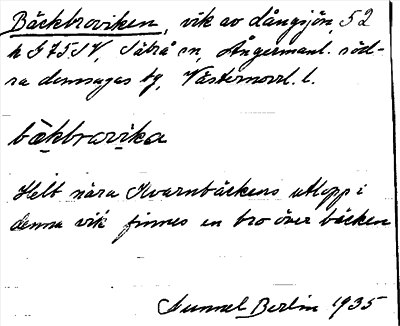 Bäckbroviken, vik av Långsjön, 52
h J 75 SV, Säbrå sn, Ångermanl. söd-
ra domsagas tg, Västernorrl. l.
bäkbravika
Helt nära Kvarnbäckens utlopp i
denna vik finnes en bro över bäcken
Gunnel Berlin 1935